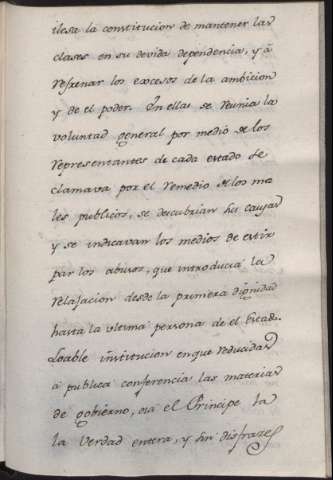 ilesa la constitucion de mantener las
clases en su devida dependencia, y à
refrenar los excesos de la ambicion
y de el poder. En ellas se reunia la
voluntad general por medio de los
representantes de cada estado se
clamava por el remedio de los ma
les publicos, se descubrian sus causas
y se indicavan los medios de extir
par los abusos, que introducia la
relajacion desde la primera dignidad
hasta la ultima persona de el Estado.
Loable institucion en que reducidas
à publica conferencia las materias
de gobierno, oia el Principe la
la verdad entera, y sin disfrazes